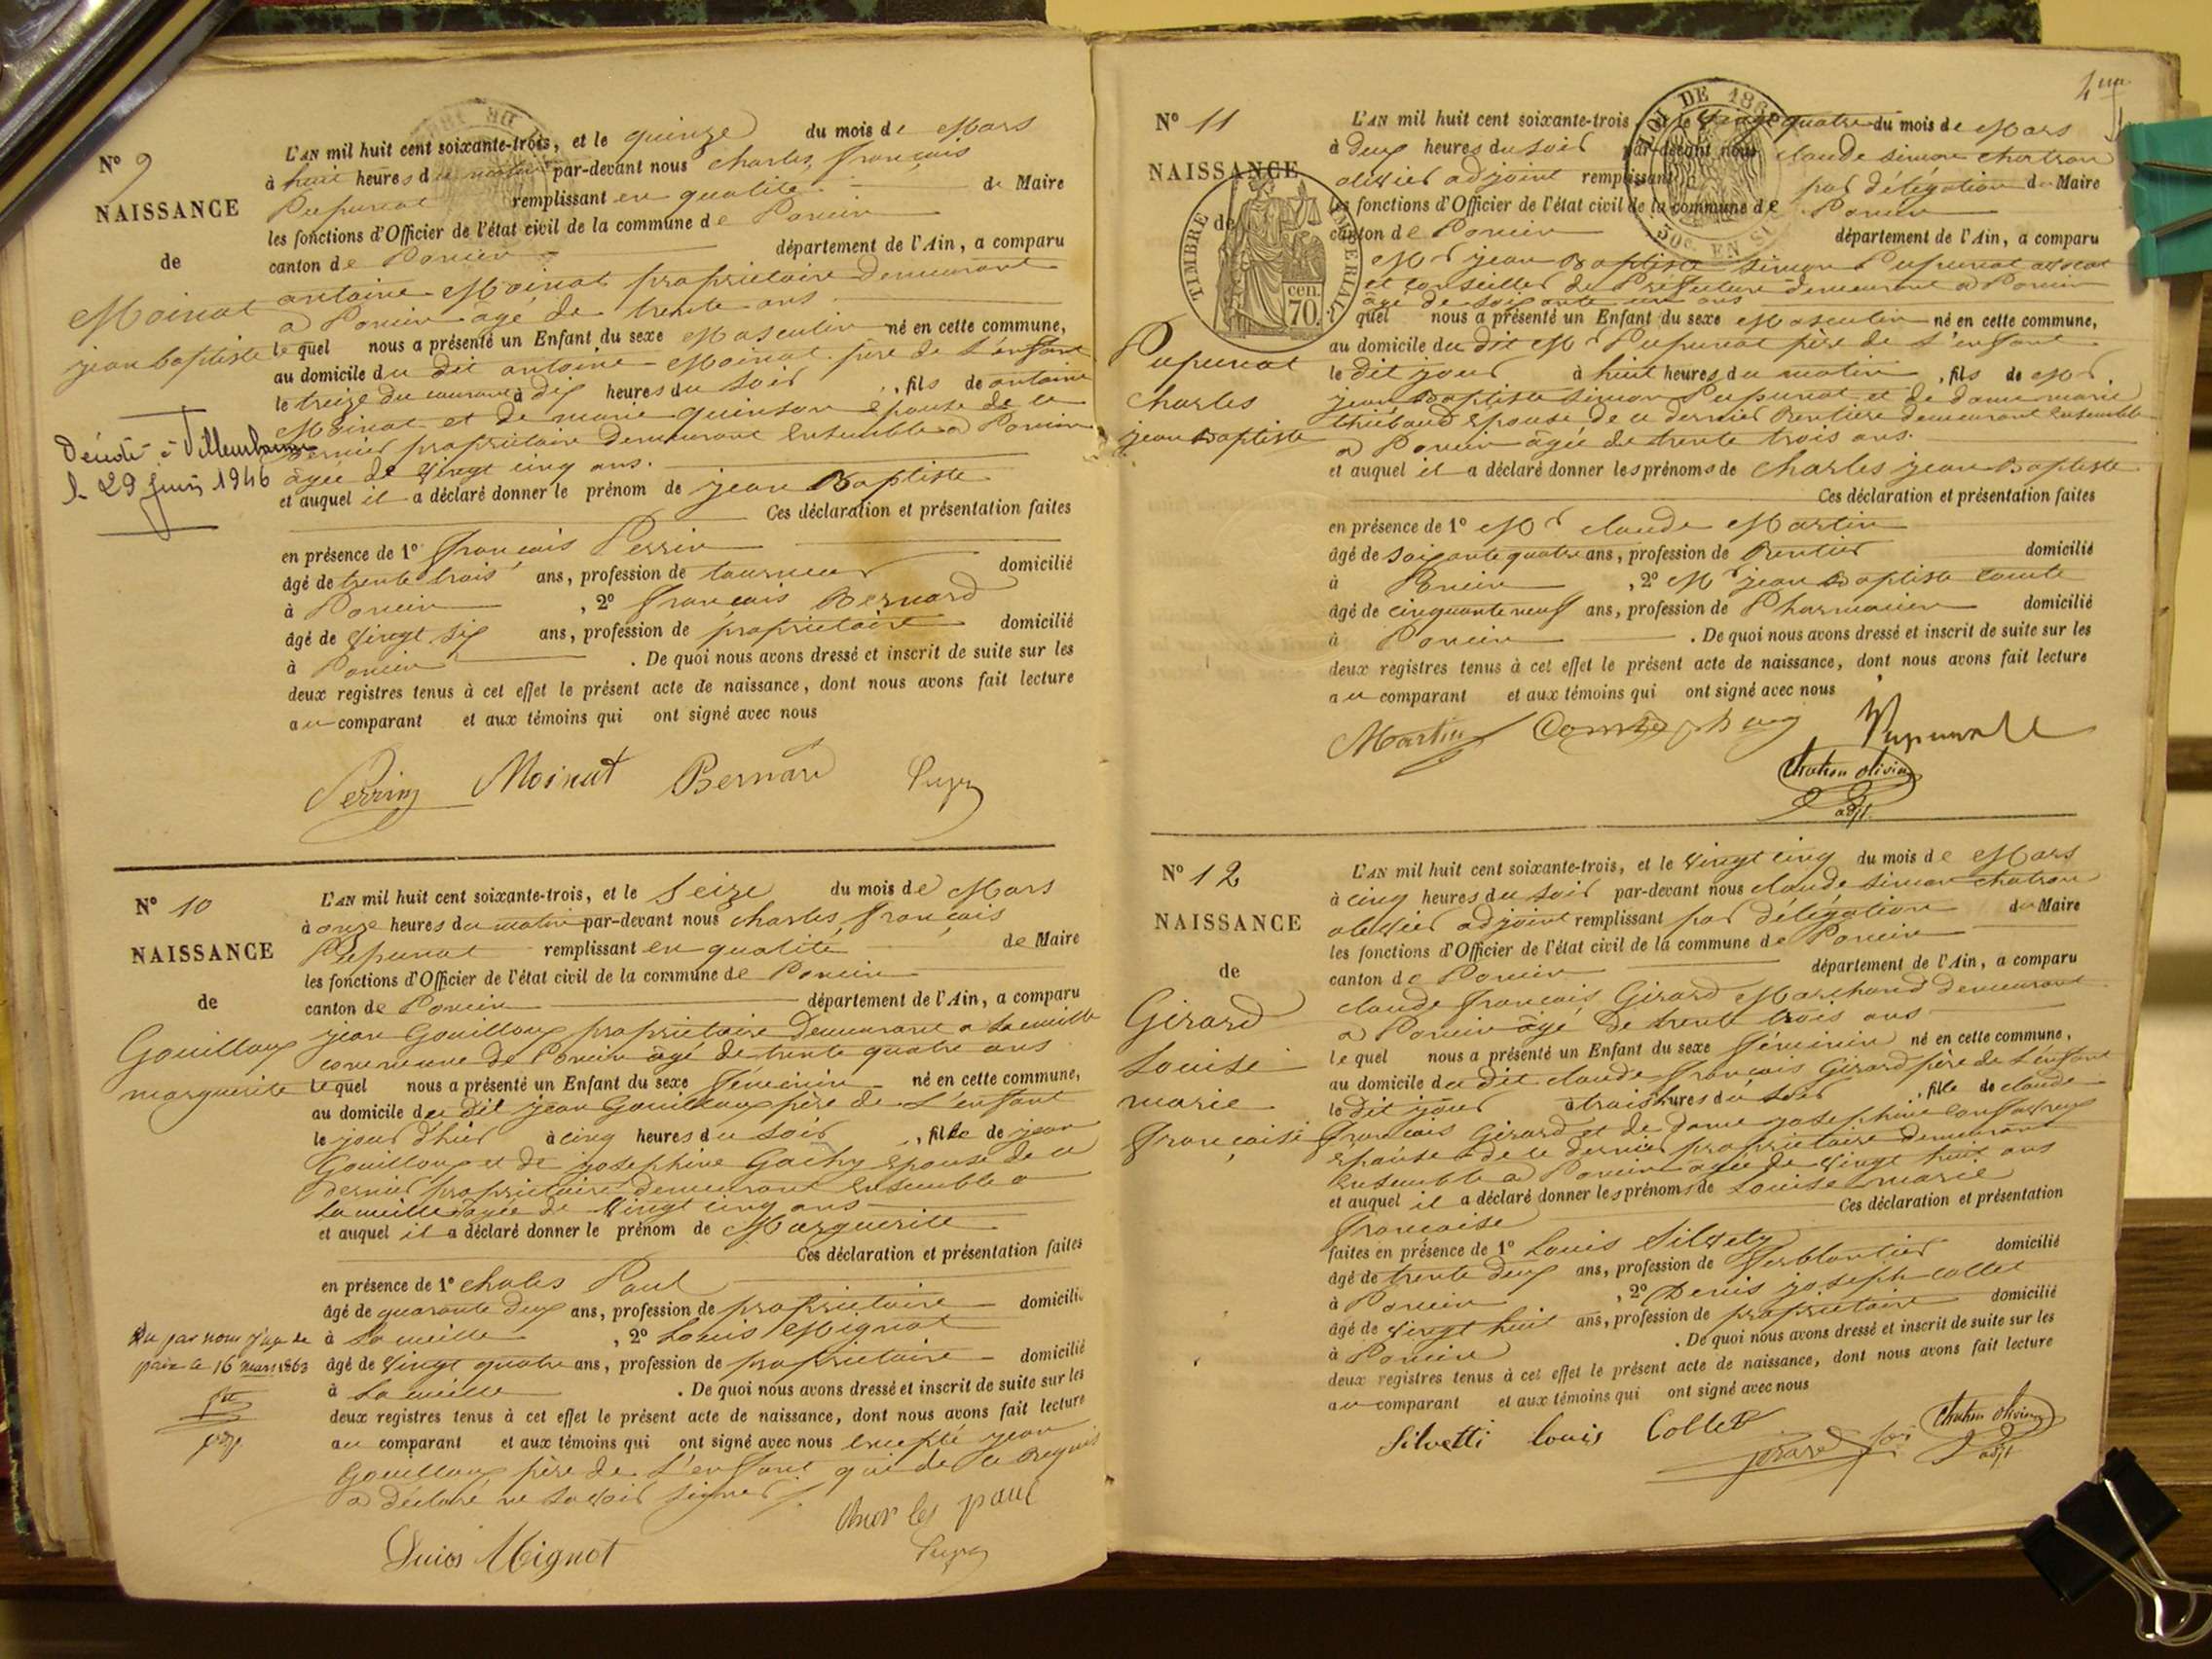 N° 9
NAISSANCE
de
Moinat
jean baptiste
Décédé à Villeurbanne
le 29 juin 1946
L'AN mil huit cent soixante-trois, et le quinze du mois de Mars
à huit heures du matin par-devant nous Charles, françois
Pupunat remplissant en qualité de Maire
les fonctions d'Officier de l'état civil de la commune de Poncin
canton de Poncin département de l'Ain, a comparu
antoine Moinat propriétaire demeurant
a Poncin âgé de trente ans
lequel nous a présenté un Enfant du sexe Masculin né en cette commune,
au domicile du dit antoine Moinat père de l'enfant
le treize du courant à dix heures du soir, fils de antoine
Moinat et de marie quinson épouse de ce
dernier propriétaire demeurant ensemble a Poncin
âgée de vingt cinq ans.
et auquel il a déclaré donner le prénom de jean Baptiste
Ces déclaration et présentation faites
en présence de 1° françois Perrin
âgé de trente trois ans, profession de tourneur domicilié
à Poncin, 2° François Bernard
âgé de vingt six ans, profession de propriétaire domicilié
à Poncin. De quoi nous avons dressé et inscrit de suite sur les
deux registres tenus à cet effet le présent acte de naissance, dont nous avons fait lecture
au comparant et aux témoins qui ont signé avec nous
Perrin Moinat Bernard
N° 10
NAISSANCE
de
Gouilloux
marguerite
Vu par nous juge de
paix le 16 mars 1863
L'AN mil huit cent soixante-trois, et le Seize du mois de Mars
à onze heures du matin par-devant nous Charles, françois
Pupunat remplissant en qualité de Maire
les fonctions d'Officier de l'état civil de la commune de Poncin
canton de Poncin département de l'Ain, a comparu
jean Gouilloux propriétaire demeurant a la cueille
commune de Poncin âgé de trente quatre ans
lequel nous a présenté un Enfant du sexe féminin né en cette commune,
au domicile du dit jean Gouilloux père de l'enfant
le jour d'hier à cinq heures du soir, fille de jean
Gouilloux et de josephine Gachy épouse de ce
dernier propriétaire demeurant ensemble a
la cueille âgée de vingt cinq ans
et auquel il a déclaré donner le prénom de Marguerite
Ces déclaration et présentation faites
en présence de 1° chales Paul
âgé de quarante deux ans, profession de propriétaire domicilié
à la cueille, 2° Louis Mignot
âgé de vingt quatre ans, profession de propriétaire domicilié
à la cueille. De quoi nous avons dressé et inscrit de suite sur les
deux registres tenus à cet effet le présent acte de naissance, dont nous avons fait lecture
au comparant et aux témoins qui ont signé avec nous excepté jean
Gouilloux père de l'enfant qui de ce Requis
a déclaré ne savoir signer
Char les paul
Louis Mignot
N° 11
NAISSANCE
de
TIMBRE IMPERIAL
70. cen.
Pupunat
Charles
jean Baptiste
L'AN mil huit cent soixante-trois, et le vingt quatre du mois de Mars
à deux heures du soir par-devant nous claude simon chatron
olivier adjoint remplissant par délégation du Maire
les fonctions d'Officier de l'état civil de la commune de Poncin
canton de Poncin département de l'Ain, a comparu
Mr jean Baptiste simon Pupunat avocat
et conseiller de Préfecture demeurant a Poncin
âgé de soixante un ans
quel nous a présenté un Enfant du sexe Masculin né en cette commune,
au domicile du dit Mr Pupunat père de l'enfant
le dit jour à huit heures du matin, fils de Mr
jean Baptiste simon Pupunat et de dame marie
thiébaud épouse de ce dernier Rentière demeurant ensemble
a Poncin âgée de trente trois ans.
et auquel il a déclaré donner les prénoms de Charles jean Baptiste
Ces déclaration et présentation faites
en présence de 1° Mr claude Martin
âgé de soixante quatre ans, profession de Rentier domicilié
à Poncin, 2° Mr jean Baptiste Comte
âgé de cinquante neuf ans, profession de Pharmacien domicilié
à Poncin. De quoi nous avons dressé et inscrit de suite sur les
deux registres tenus à cet effet le présent acte de naissance, dont nous avons fait lecture
au comparant et aux témoins qui ont signé avec nous
Martin Comte
Chatron olivier
adjt.
N° 12
NAISSANCE
de
Girard
Louise
marie
françoise
L'AN mil huit cent soixante-trois, et le vingt cinq du mois de Mars
à cinq heures du soir par-devant nous claude simon chatron
olivier adjoint remplissant par délégation du Maire
les fonctions d'Officier de l'état civil de la commune de Poncin
canton de Poncin département de l'Ain, a comparu
claude françois Girard Marchand demeurant
a Poncin âgé de trente trois ans
lequel nous a présenté un Enfant du sexe féminin né en cette commune,
au domicile du dit claude françois Girard père de l'enfant
le dit jour à trois heures du soir, fille de claude
françois Girard et de dame josephine
épouse de ce dernier propriétaire demeurant
ensemble a Poncin âgée de vingt huit ans
et auquel il a déclaré donner les prénoms de Louise marie
Ces déclaration et présentation
françoise
faites en présence de 1° Louis Silvety
âgé de trente deux ans, profession de ferblantier domicilié
à Poncin, 2° Denis joseph collet
âgé de vingt huit ans, profession de propriétaire domicilié
à Poncin. De quoi nous avons dressé et inscrit de suite sur les
deux registres tenus à cet effet le présent acte de naissance, dont nous avons fait lecture
au comparant et aux témoins qui ont signé avec nous
Silvetti louis Collet
Chatron olivier
adjt